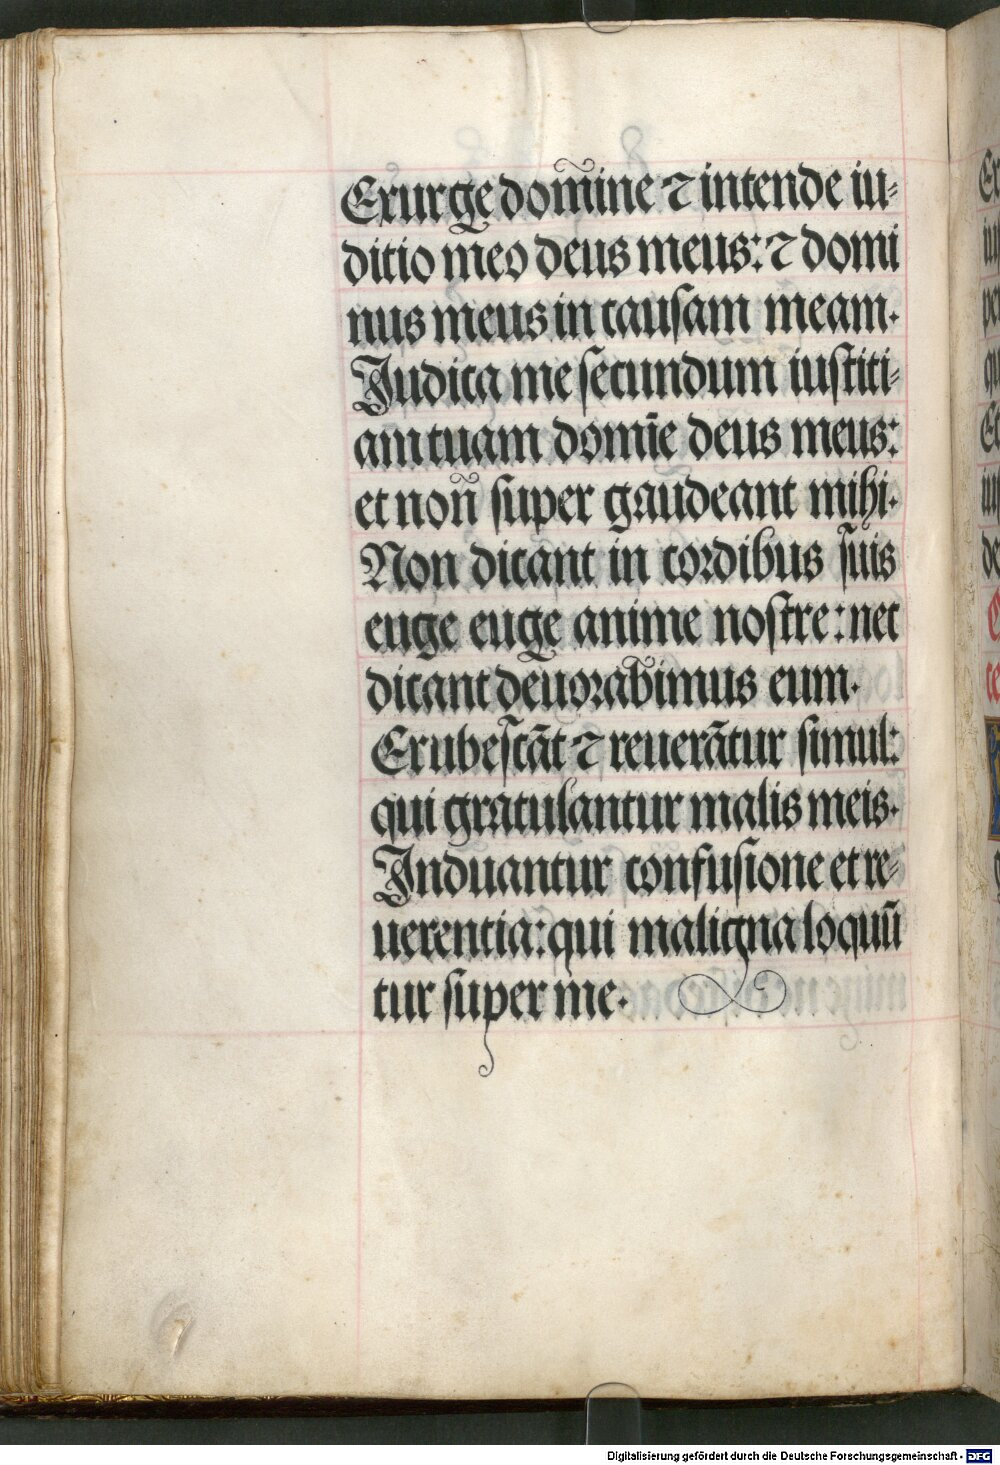 Exurge domine ⁊ intende iu⸗
ditio meo deus meus: ⁊ domi
nus meus in causam meam.
Judica me secundum iustiti⸗
am tuam domīe deus meus:
et non̄ super gaudeant mihi.
Non dicant in cordibus suis
euge euge anime nostre: nec
dicant deuorabimus eum.
Erubescāt ⁊ reuerātur simul:
qui gratulantur malis meis.
Induantur confusione et re⸗
uerentia: qui maligna loquū
tur super me.
Digitalisierung gefördert durch die Deutsche Forschungsgemeinschaft - DFG